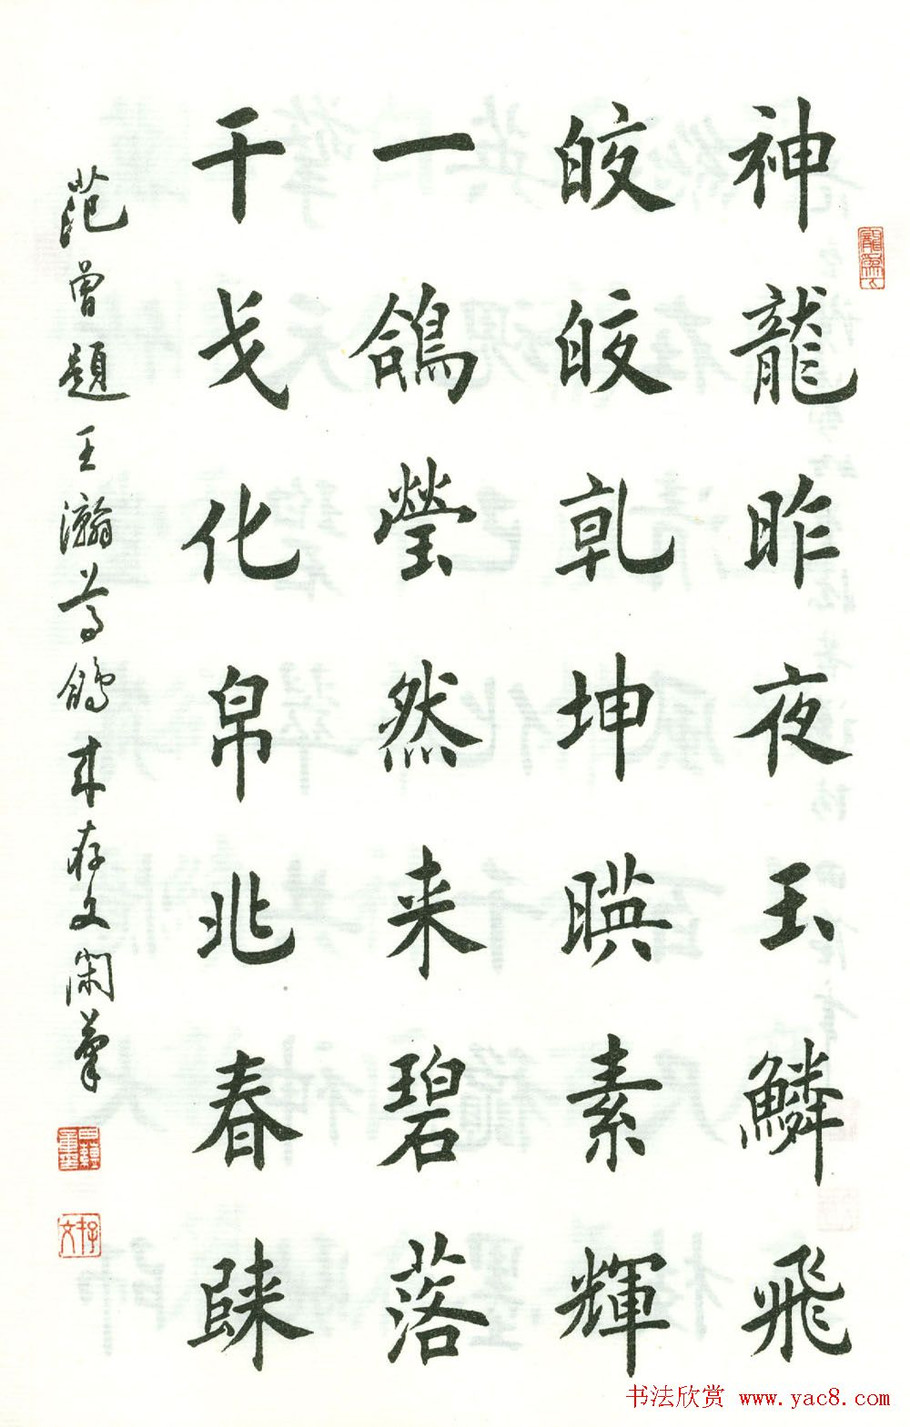 神龍昨夜玉鱗飛
皎皎乾坤暎素輝
一鴿瑩然来碧落
干戈化帛兆春歸
范曾題王瀚鴿存文闲筆
存文
书法欣赏 www.yac8.com